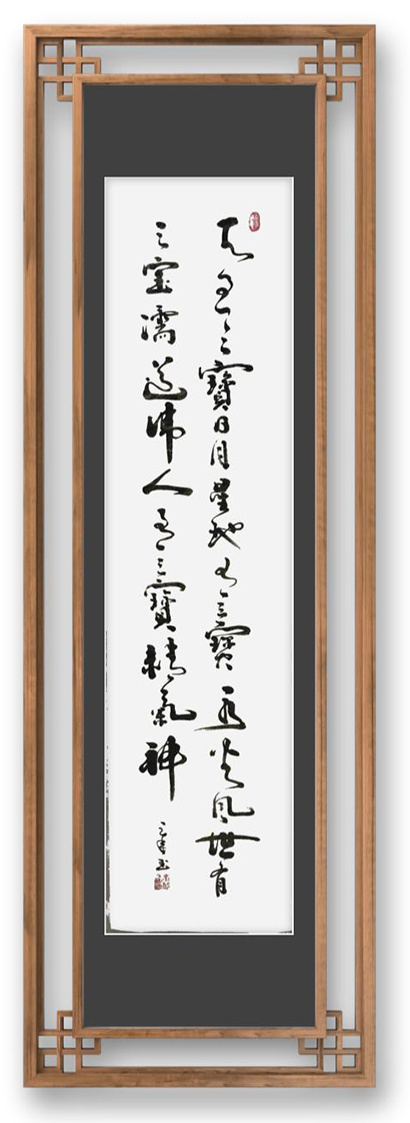 天有三寶日月星地有三寶水火風世有
三宝儒道佛人有三寶精氣神